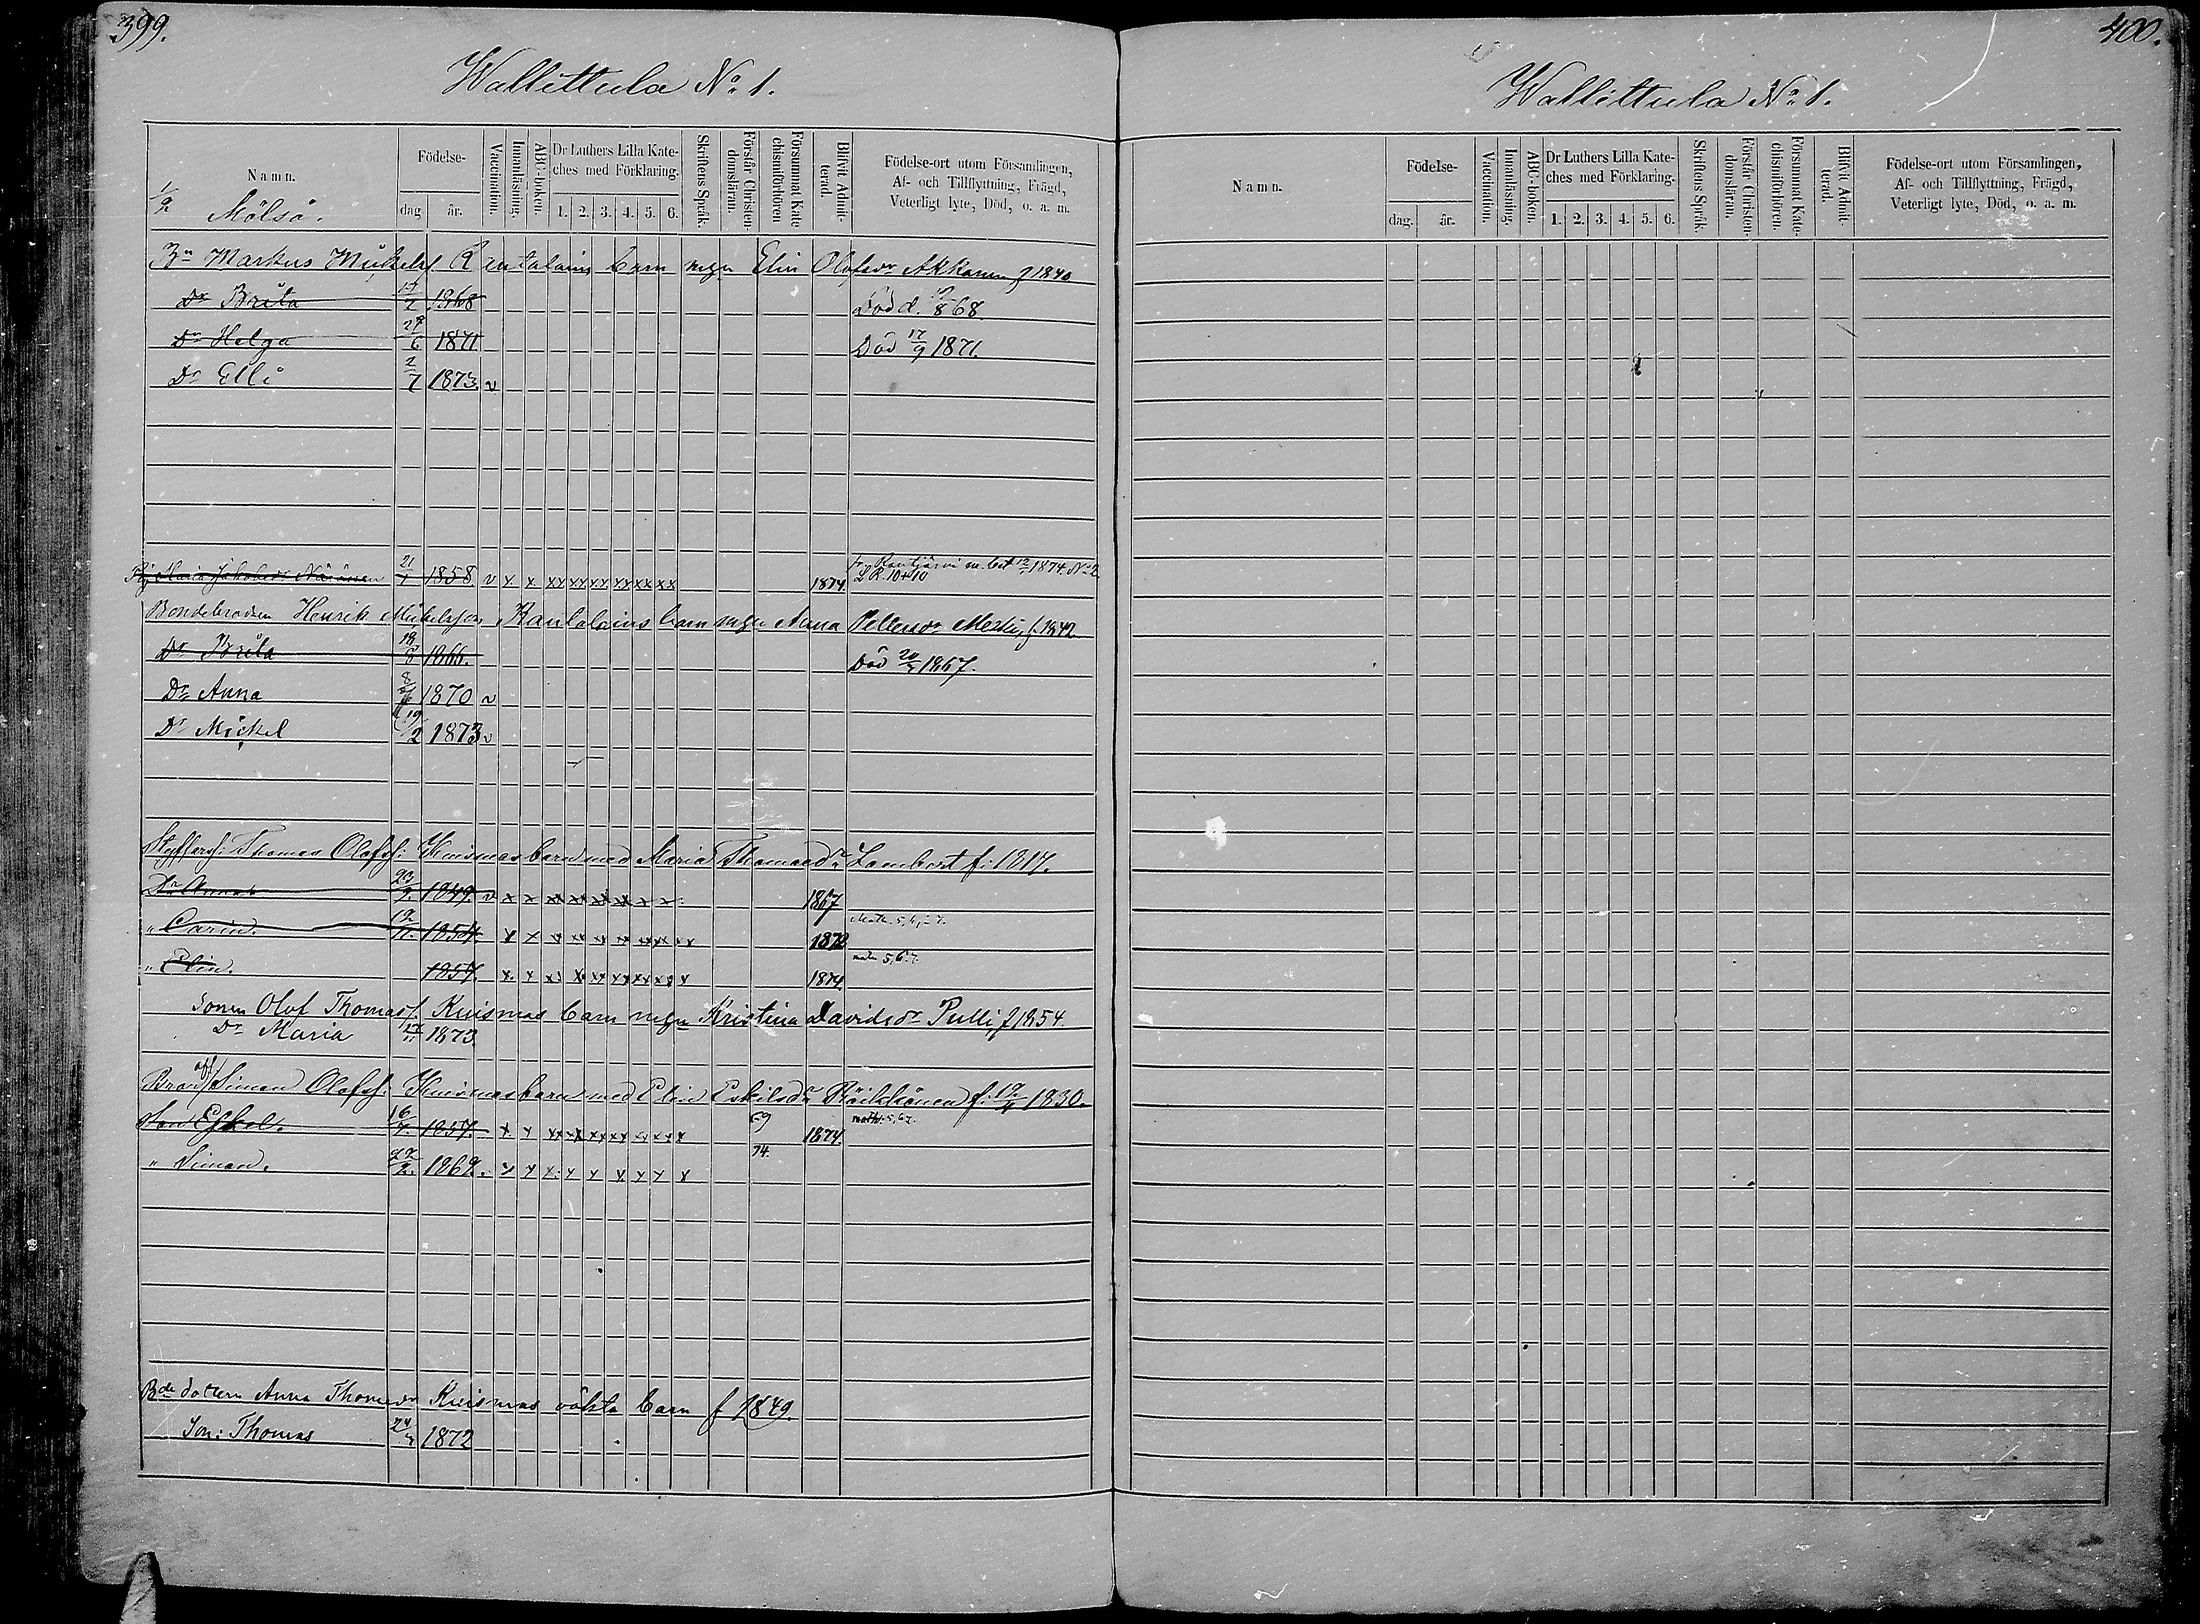 399.
Wallittula No 1.
Namn.
Födelse-
dag
år.
Vaccination.
Innanläsning.
ABC-boken.
Dr Luthers Lilla Kate-
ches med Förklaring.
1. 2. 3. 4. 5. 6.
Skriftens Språk.
Förstår Christen-
domsläran.
Försummat Kate
chismiförhören
Blifvit Admit-
terad.
Födelse-ort utom Församlingen,
Af- och Tillflyttning, Frägd,
Veterligt lyte, Död, o. a. m.
1/2 Mölsä.
Markus Mickelsf. Rautalains barn m. Elin Olofsdr Akkanen f 1840
Dr Brita 1868 Död d. 68.
Dr Helga 29/6 1871 Död 17/9 1871.
Dr Elli 2/7 1873. v
Maria Jakobsdr 21/1 1858. v x x xx xx xx xx xx xx 1874 fr Kontjärvi m. bet 12/1 1874 No 2
L R. 10+10
Bondebrodren Henrik Mickelsson Rautalains barn m. Anna Pettersdr f. 1842
Dr Brita 18/8 1866. Död 1867.
Dr Anna 1870 v
Dr Mickel 19/2 1873 v
Thomas Olofsf: Kuismas barn med Maria Thomasdr Lambert f: 1817.
Dr Anna 23/9. 1849. v x x xx xx xx xx x x 1867
" Carin. 12/11. 1854. x x xx xx xx xx xx xx 1872
" Elin. 1857. x x xx x xx xx xx xx x 1874 5, 6. 7.
Sonen Olof Thomasf. Kuismas barn m. Kristina Davidsdr Pulli, f 1854.
Dr Maria 17/11 1873.
Simon Olofsf. Kuismas barn med Elin Eskilsdr Räikkönen f: 1830.
Son Eskel. 16/7. 1857. x x xx xx xx xx xx xx x 69 1874
" Simon. 22/2. 1862. x x x x x x x x x 74.
Bde dottern Anna Thomasdr Kuismas oäkta barn f 1849.
Son: Thomas 1872
400.
Wallittula No 1.
Namn.
Födelse-
dag.
år.
Vaccination.
Innanläsning.
ABC-boken.
Dr Luthers Lilla Kate-
ches med Förklaring.
1. 2. 3. 4. 5. 6.
Skriftens Språk.
Förstår Christen-
domsläran.
Försummat Kate-
chismiförhören.
Blifvit Admit-
terad.
Födelse-ort utom Församlingen,
Af- och Tillflyttning, Frägd,
Veterligt lyte, Död, o. a. m.